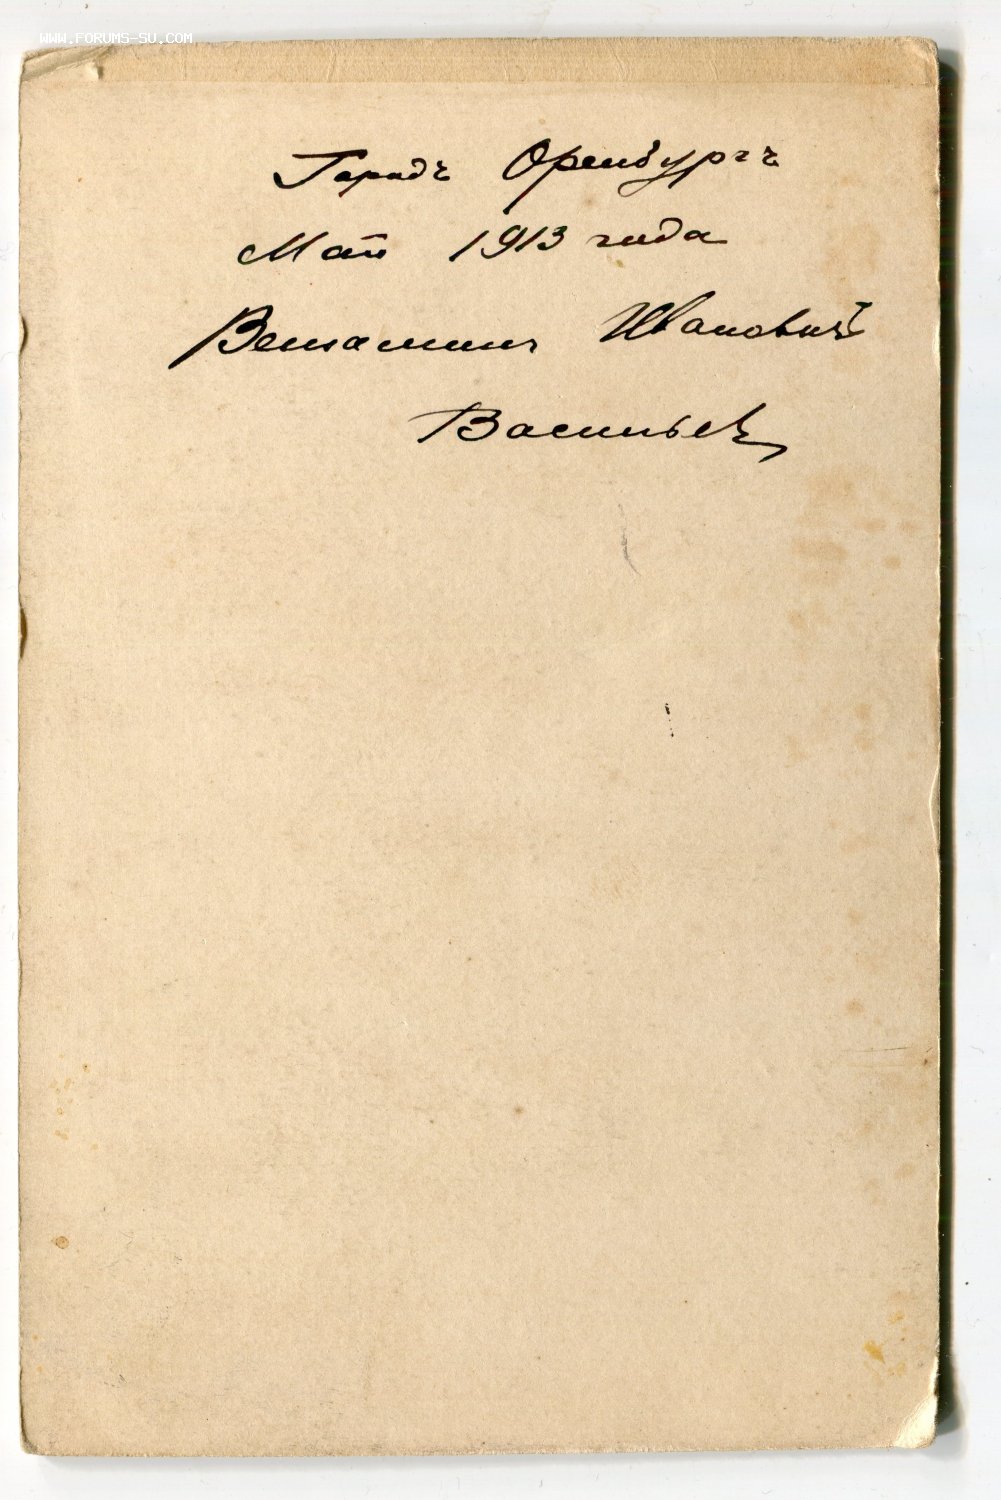 WWW.FORUMS-SU.COM
Городъ Оренбургъ
Май 1913 года
Вениаминъ Ивановичъ
Васильевъ